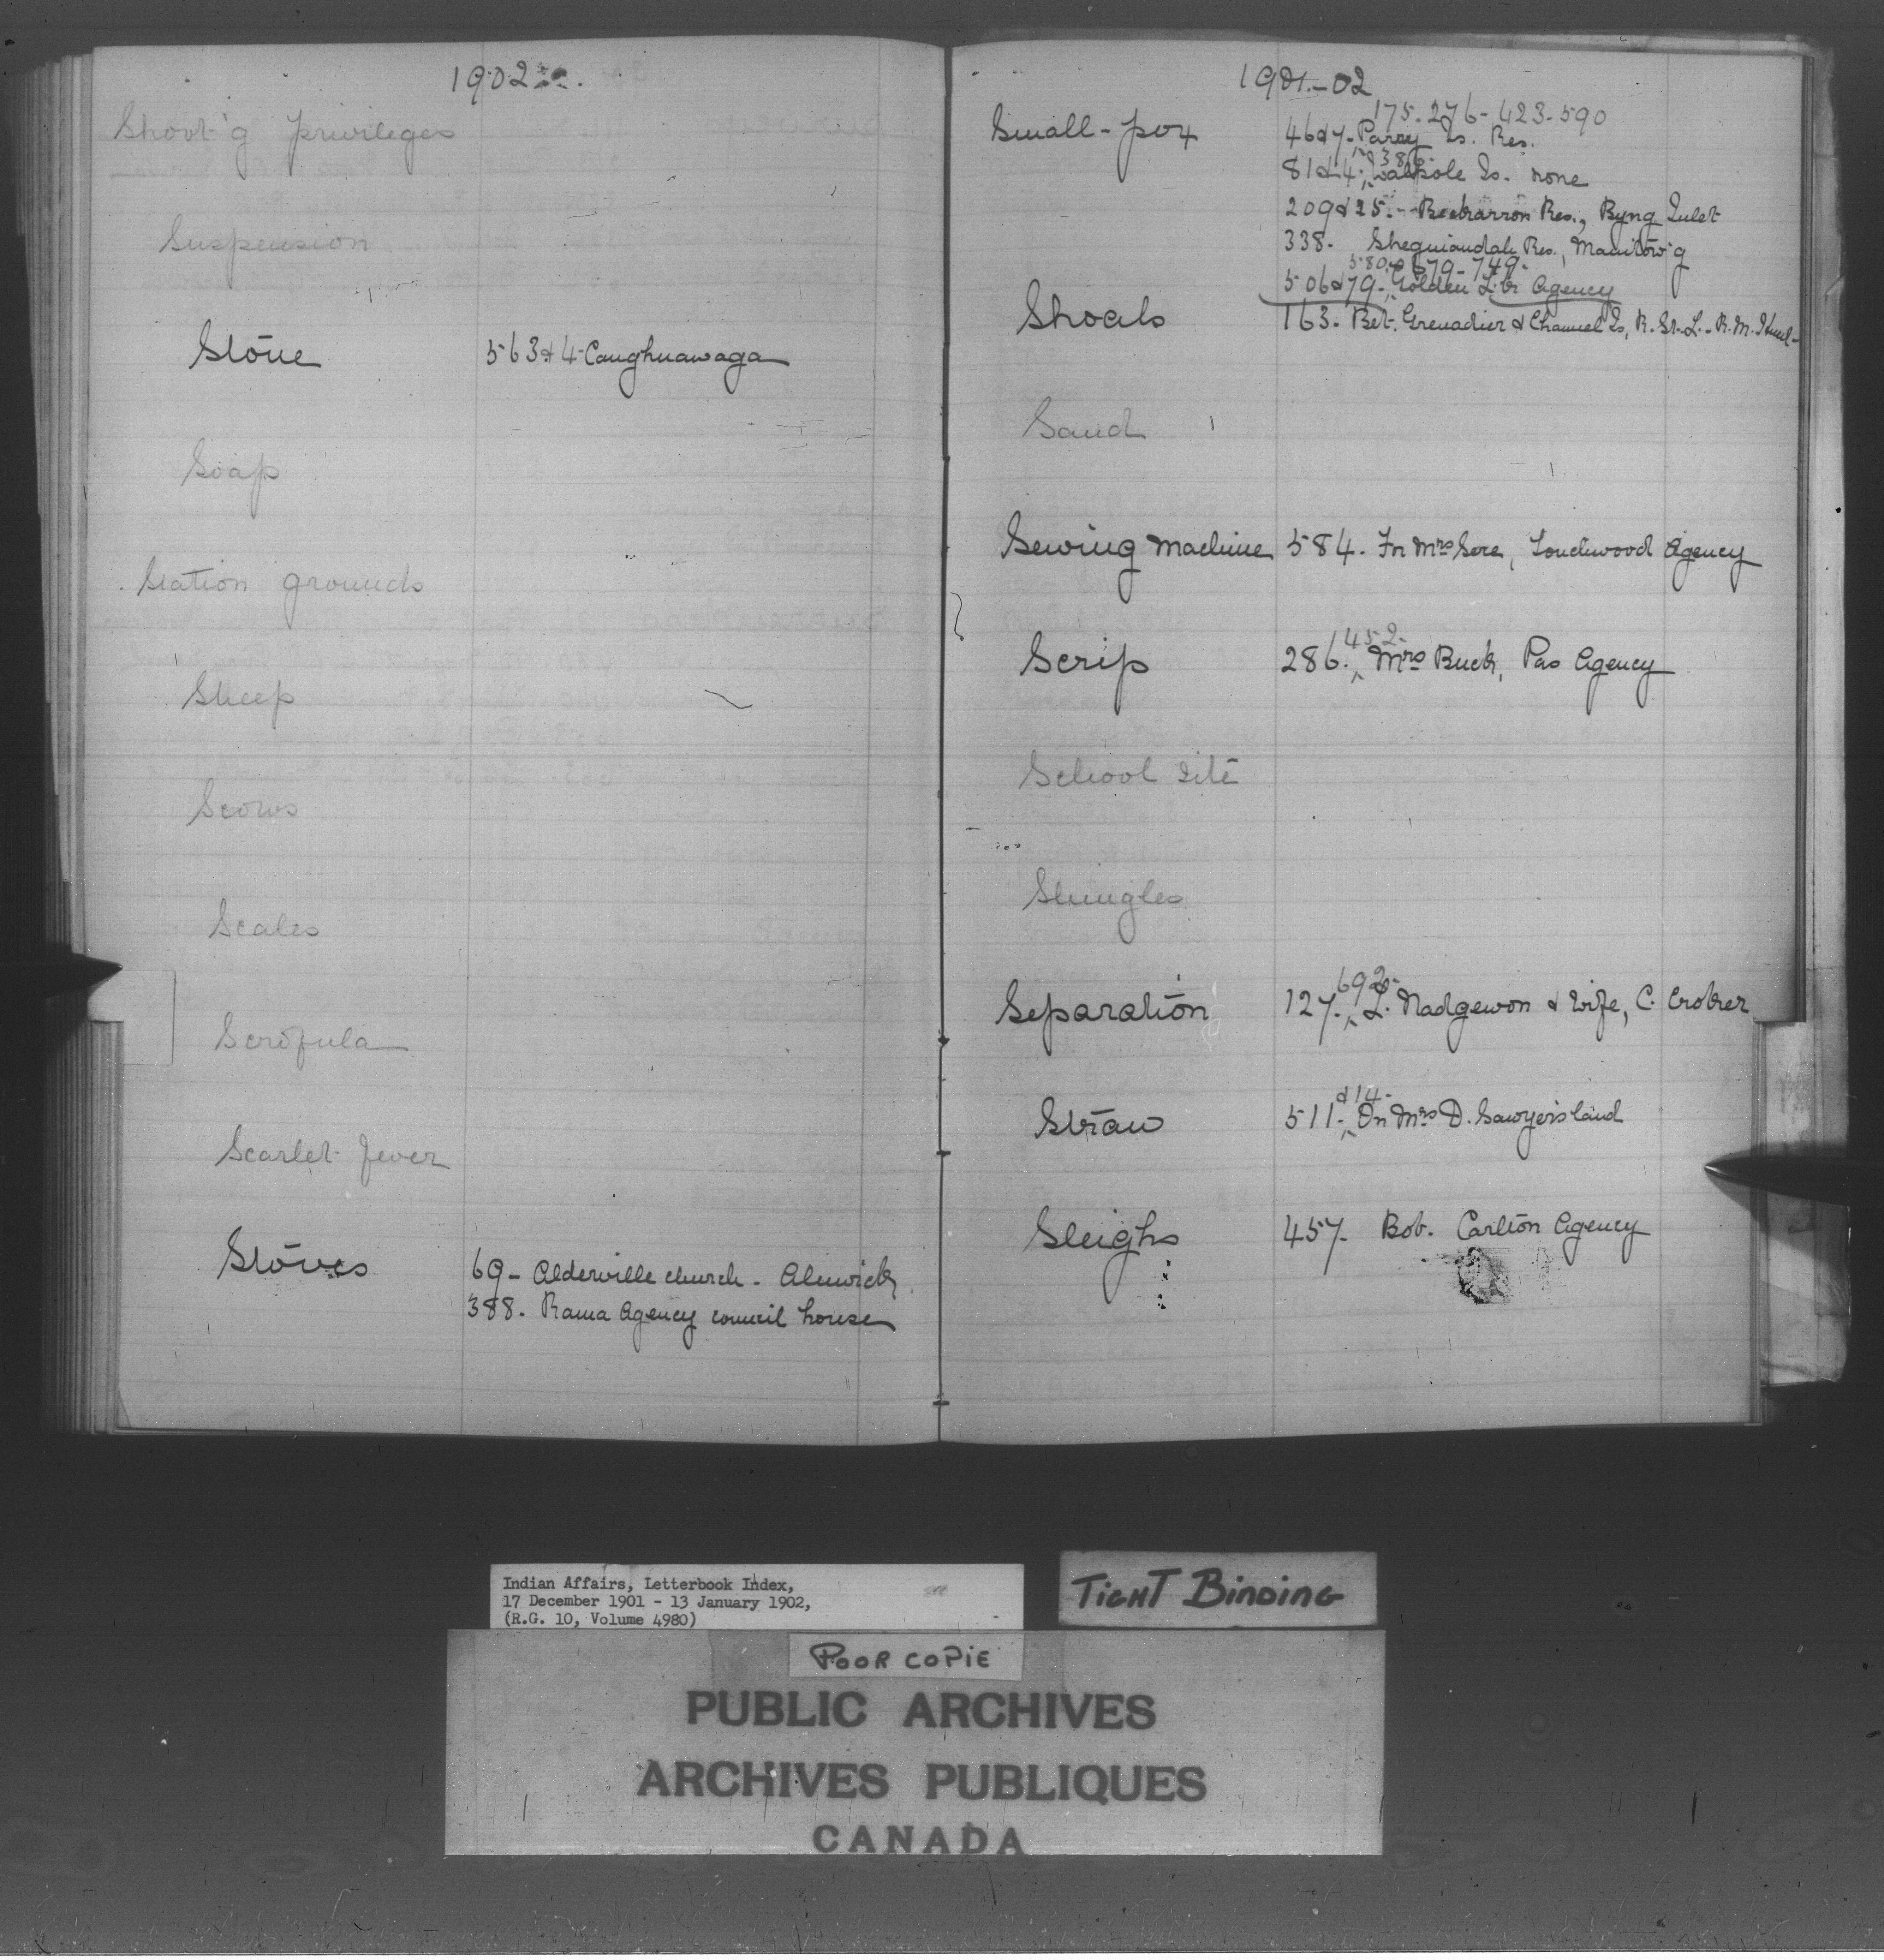 1902
Shoot'g privileges
Suspension
Stone 563 & 4 - Caughnawaga
Soap
Station grounds
Sheep
Scows
Scales
Scrofula
Scarlet fever
Stoves 69 - Alderville church - Alnwick
388. Rama Agency council house
1901-02
175-276-423-590
Small-pox 46 & 7 - Parry Is. Res.
& 38
81 & 4. Walpole Is. none
209 & 25. - Res., Byng Inlet
338. Sheguiandah Res., Manitow'g
580 679-749-
506 & 79 - Golden L. Agency
Shoals 163. Bet. Grenadier & Channel Is, R. St. L. - R. M.
Sand
Sewing machine 584. For Mrs Gere, Touchwood Agency
452-
Scrip 286. Mrs Buck, Pas Agency
School site
Shingles
692-
Separation 127. L. Nadgewon & wife, C. Croker
& 14-
Straw 511. On Mrs D. Sawyer's land
Sleighs 457. Bob. Carlton Agency
Indian Affairs, Letterbook Index,
17 December 1901 - 13 January 1902,
(R.G. 10, Volume 4980)
TIGHT BINDING
POOR COPIE
PUBLIC ARCHIVES
ARCHIVES PUBLIQUES
CANADA